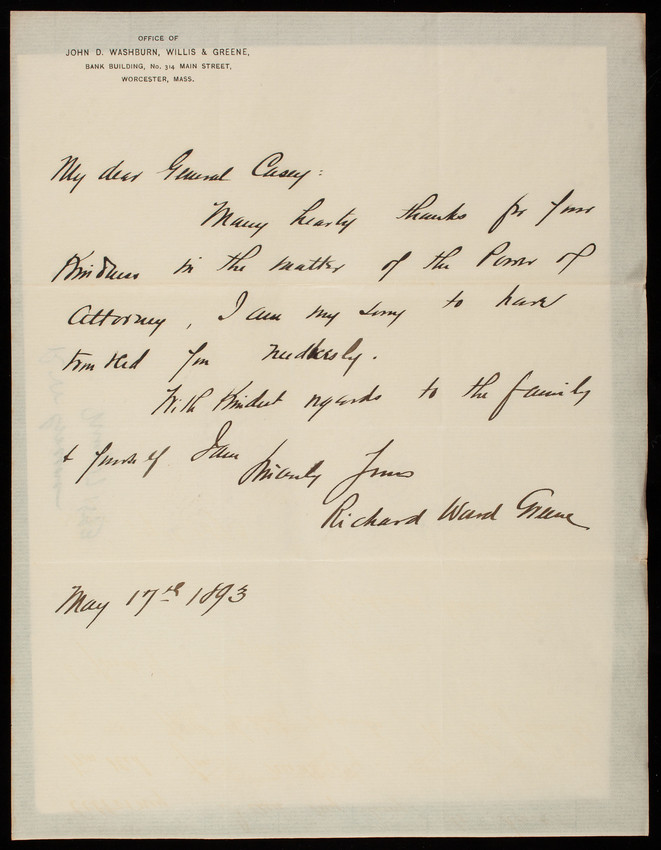 OFFICE OF
JOHN D. WASHBURN, WILLIS & GREENE,
BANK BUILDING, No. 314 MAIN STREET,
WORCESTER, MASS.
My dear General Casey:
Many hearty thanks for your
Kindness in the matter of the Power of
Attorney, I am very sorry to have
troubled you needlessly.
With Kindest regards to the family
& yourself I am Sincerely Yours
Richard Ward Greene
May 17th 1893